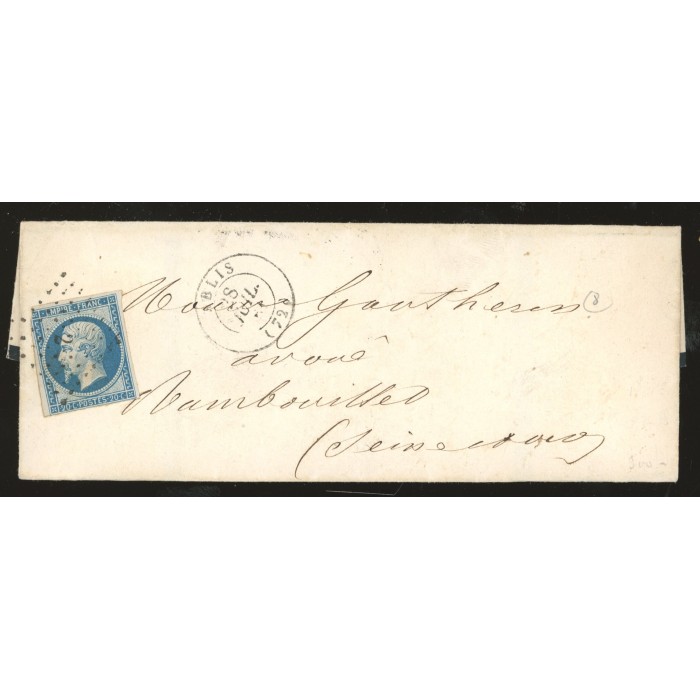 EMPIRE FRANC
20 C POSTES 20 C
BLIS
28
JUIL
(72)
Monsr Gautherin
avoué
Rambouillet
(Seine et oise)
8
500-